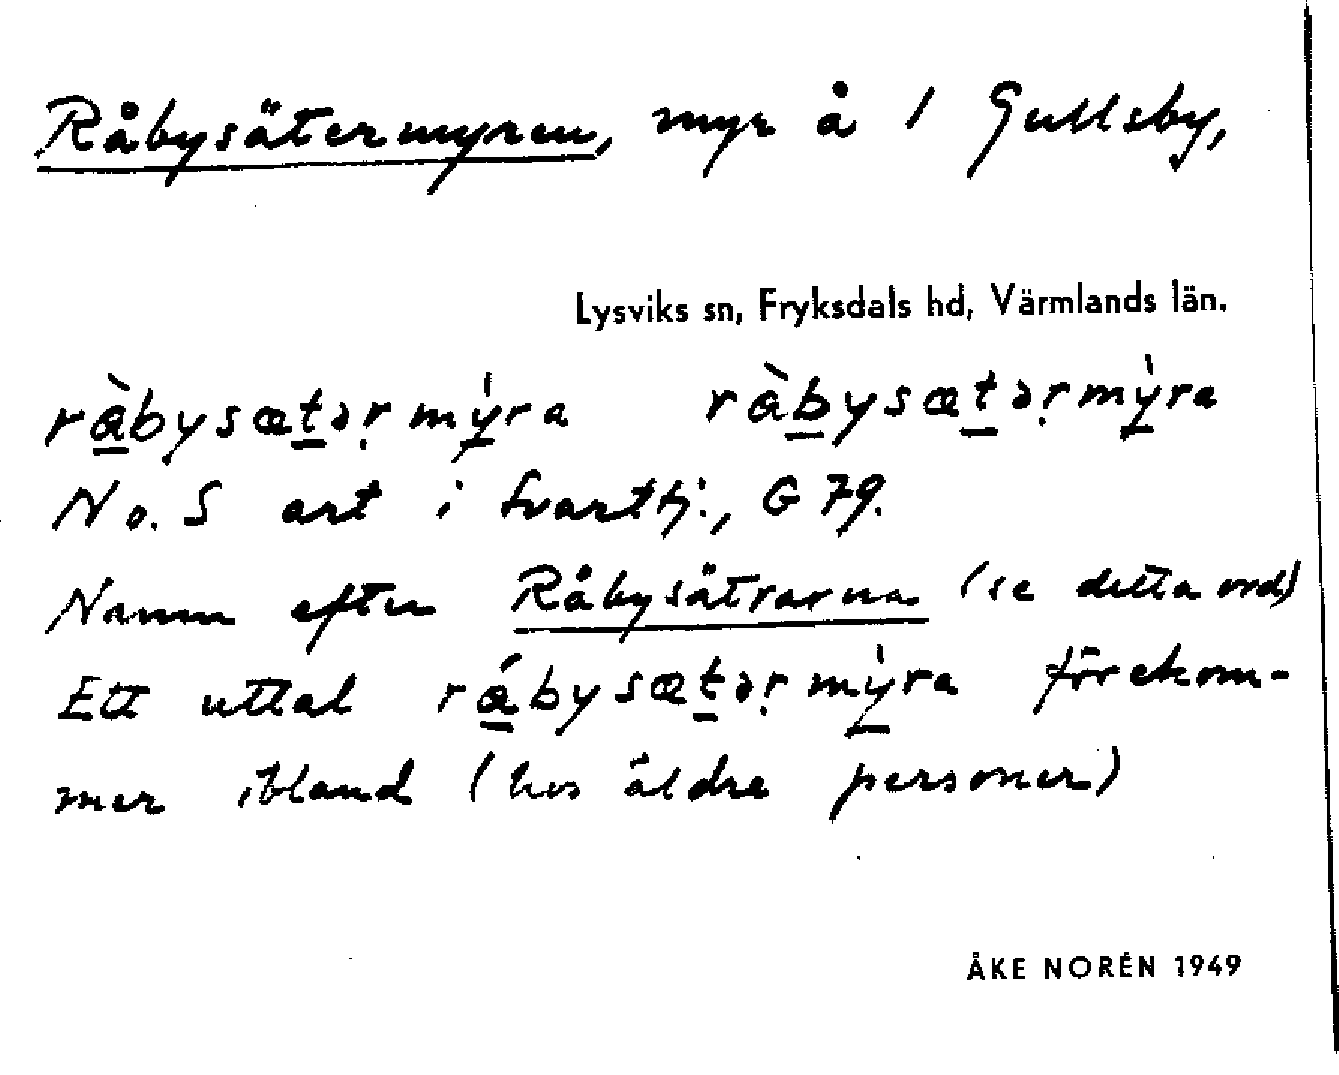 Råbysätermyren, myr å 1 Gullsby,
Lysviks sn, Fryksdals hd, Värmlands län.
rå̀bysætəṛmýra rå̀bysætəṛmýra
No. S ant i Svarttj., G 79.
Namn efter Råbysätrarna (se detta ord)
Ett uttal rǻbysætəṛmýra förekom-
mer ibland (hos äldre personer)
ÅKE NORÉN 1949